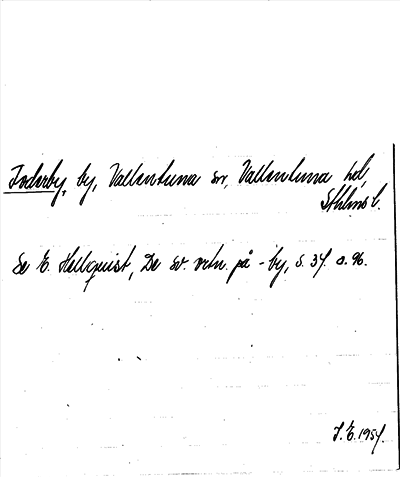 Foderby, by, Vallentuna sn, Vallentuna hd,
Sthlms l.
Se E. Hellquist, De sv. ortn. på -by, s. 34 o. 96.
J. E. 1954.